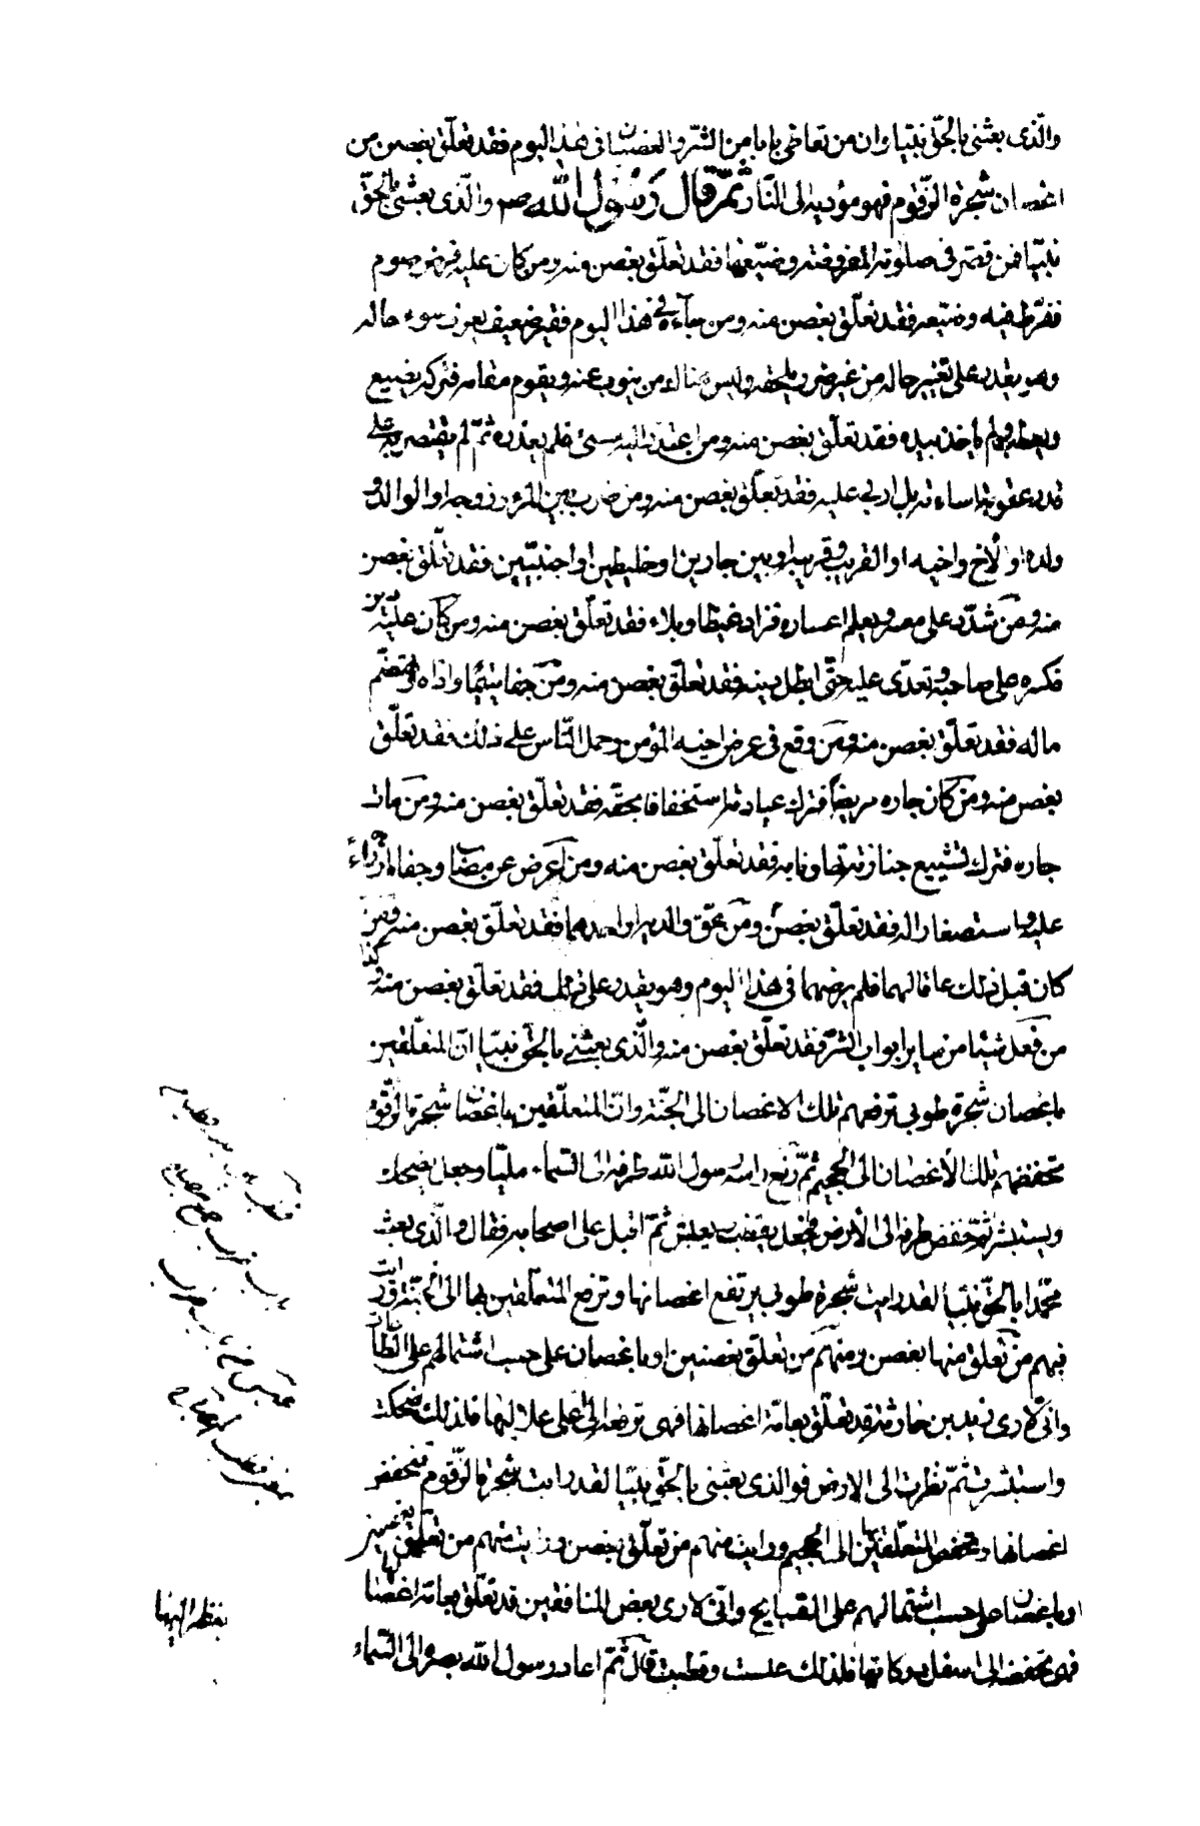 والّذى بعثنى بالحقّ نبيّا وان من تعاطى بابا من الشرّ والعصيان فى هذا اليوم فقد تعلّق بغصن من
اغصان شجرة الزقّوم فهو مؤديه الى النّار ثمّ قال رسول الله صم والّذى بعثنى بالحقّ
نبيّا فمن قصّر فى صلوته المفروضة وضيّعها فقد تعلّق بغصن منه ومن كان عليه فرض صوم
ففرّط فيه وضيّعه فقد تعلّق بغصن منه ومن جاءه فى هذا اليوم فقير ضعيف يعرف سوء حاله
وهو يقدر على تغيير حاله من غير ضرر يلحقه وليس هناك من ينوب عنه ويقوم مقامه فتركه يضيع
ويعطب ولم ياخذ بيده فقد تعلّق بغصن منه ومن اعتذر اليه مسئ فلم يعذره ثمّ لم يقتصر به على
قدر عقوبة اساءته بل اربى عليه فقد تعلّق بغصن منه ومن ضرب بين المرء وزوجه او الوالد و
ولده او الأخ واخيه او القريب وقريبه او بين جارين او خليطين او اجنبيّين فقد تعلّق بغصن
منه ومن شدّد على معسر وهو يعلم اعساره فزاد غيظا وبلاء فقد تعلّق بغصن منه ومن كان عليه دين
فكسره على صاحبه وتعدّى عليه حتّى ابطل دينه فقد تعلّق بغصن منه ومن جفا يتيما واذاه وتهضّم
ماله فقد تعلّق بغصن منه ومن وقع فى عرض اخيه المؤمن وحمل النّاس على ذلك فقد تعلّق
بغصن منه ومن كان جاره مريضا فترك عيادته استخفافا بحقّه فقد تعلّق بغصن منه ومن مات
جاره فترك تشييع جنازته تهاونا به فقد تعلّق بغصن منه ومن اعرض عن مصاب وجفاه ازراءً
عليه واستصغارا له فقد تعلّق بغصن ومن عقّ والديه او احدهما فقد تعلّق بغصن منه ومن
كان قبل ذلك عاقا لهما فلم يرضهما فى هذا اليوم وهو يقدر على ذلك فقد تعلّق بغصن منه وكذا
من فعل شيئا من ساير ابواب الشرّ فقد تعلّق بغصن منه والّذى بعثنى بالحقّ نبيّا انّ المتعلّقين
باغصان شجرة طوبى ترفعهم تلك الاغصان الى الجنّة وانّ المتعلّقين باغصان شجرة الزقّوم
تخفضهم تلك الأغصان الى الجحيم ثمّ رفع رسول الله طرفه الى السّماء مليّا وجعل يضحك
ويستبشر ثمّ خفض طرفه الى الأرض فجعل يقطب ويعبس ثمّ اقبل على اصحابه فقال والّذى بعث
محمّدا بالحقّ نبيّا لقد رايت شجرة طوبى يرتفع اغصانها وترفع المتعلّقين بها الى الجنّة ورايت
فيهم من تعلّق منها بغصن ومنهم من تعلّق بغصنين او باغصان على حسب اشتمالهم على الطّاعات
وانّى لارى زيد بن حارثة قد تعلّق بعامّة اغصانها فهى ترفعه الى اعلى علاليها فلذلك ضحكت
واستبشرت ثمّ نظرت الى الارض فوالذى بعثنى بالحقّ نبيّا لقد رايت شجرة الزقّوم تنخفض
اغصانها وتخفض المتعلّقين بها الى الجحيم ورايت منهم من تعلّق بغصن ورايت منهم من تعلّق بغصنين
او باغصان على حسب اشتمالهم على القبايح وانّى لارى بعض المنافقين قد تعلّق بعامّة اغصانها
فهى تخفضه الى اسفل دركاتها فلذلك عبست وقطبت قال ثمّ اعاد رسول الله بصره الى السّماء
ينظر اليها